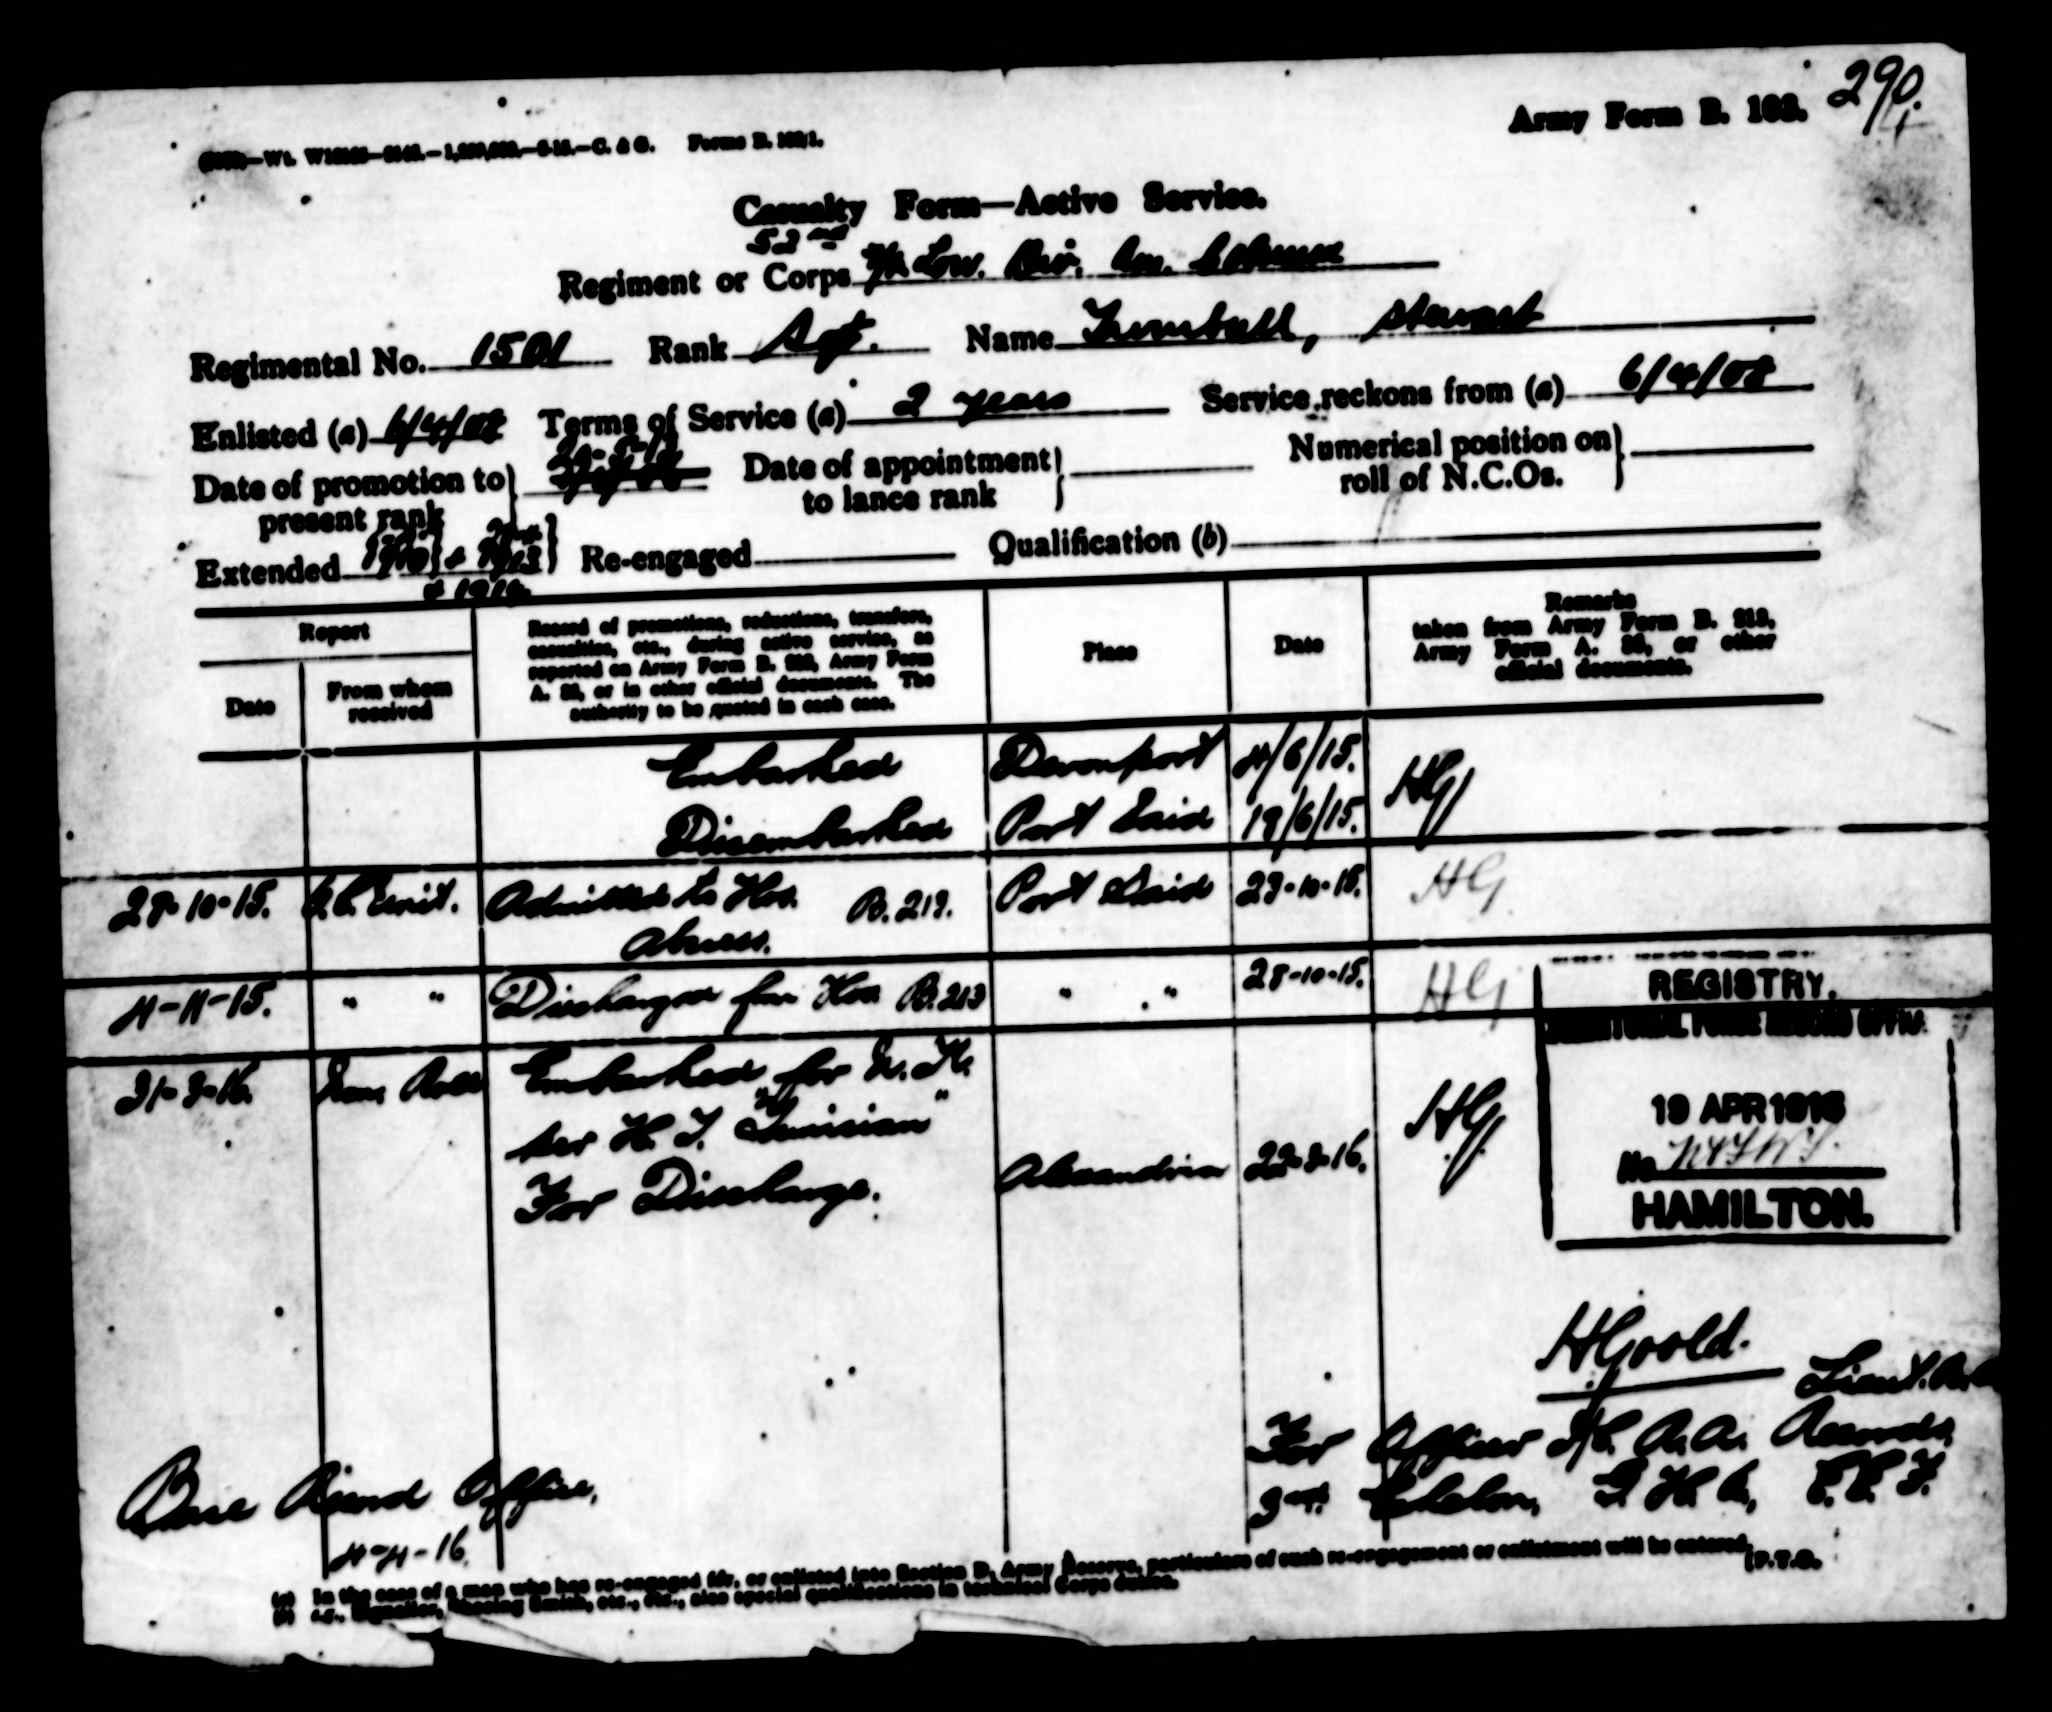 290.
Army Form B. 103.
Forms B. 103/1.
Casualty Form—Active Service.
52nd
Regiment or Corps Low. Div. Am. Column
Regimental No. 1501 Rank Sgt. Name Turnbull, Stewart
Enlisted (a) 6/4/08 Terms of Service (a) 2 years Service reckons from (a) 6/4/08
Date of promotion to present rank Date of appointment to lance rank Numerical position on roll of N.C.Os.
Extended Re-engaged Qualification (b)
& 1914
Report
Record of promotions, reductions, transfers, casualties, etc., during active service, as reported on Army Form B. 213, Army Form A. 36, or in other official documents. The authority to be quoted in each case.
Place
Date
Remarks taken from Army Form B. 213, Army Form A. 36, or other official documents.
Date
From whom received
Embarked Devonport 4/6/15.
Disembarked Port Said 19/6/15. HG
O.C. Unit. Admitted to Hos. B.213. Port Said HG
Abscess.
4-11-15. " " Discharged fm Hos. B.213 " " 28-10-15. HG
31-3-16. Embarked for U.K.
per H.T. "Tunisian"
For Discharge. Alexandria HG
REGISTRY.
TERRITORIAL FORCE RECORD OFFICE
19 APR 1916
No
HAMILTON.
HGoold.
Lieut.
For Officer I/C. R.A. Records,
3rd Echelon, G.H.Q., E.E.F.
Base Record Office,
4-4-16.
(a) In the case of a man who has re-engaged for, or enlisted into Section D, Army Reserve, particulars of such re-engagement or enlistment will be entered.
(b) e.g., Signaller, Shoeing Smith, etc., etc., also special qualifications in technical Corps duties.
[P.T.O.